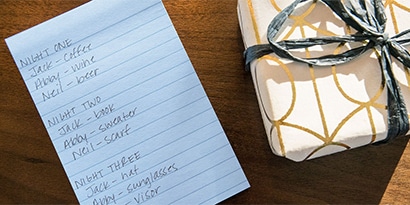 NIGHT ONE
Jack - coffee
Abby - wine
Neil - beer
NIGHT TWO
Jack - book
Abby - sweater
Neil - scarf
NIGHT THREE
Jack - hat
Abby - sunglasses
- visor